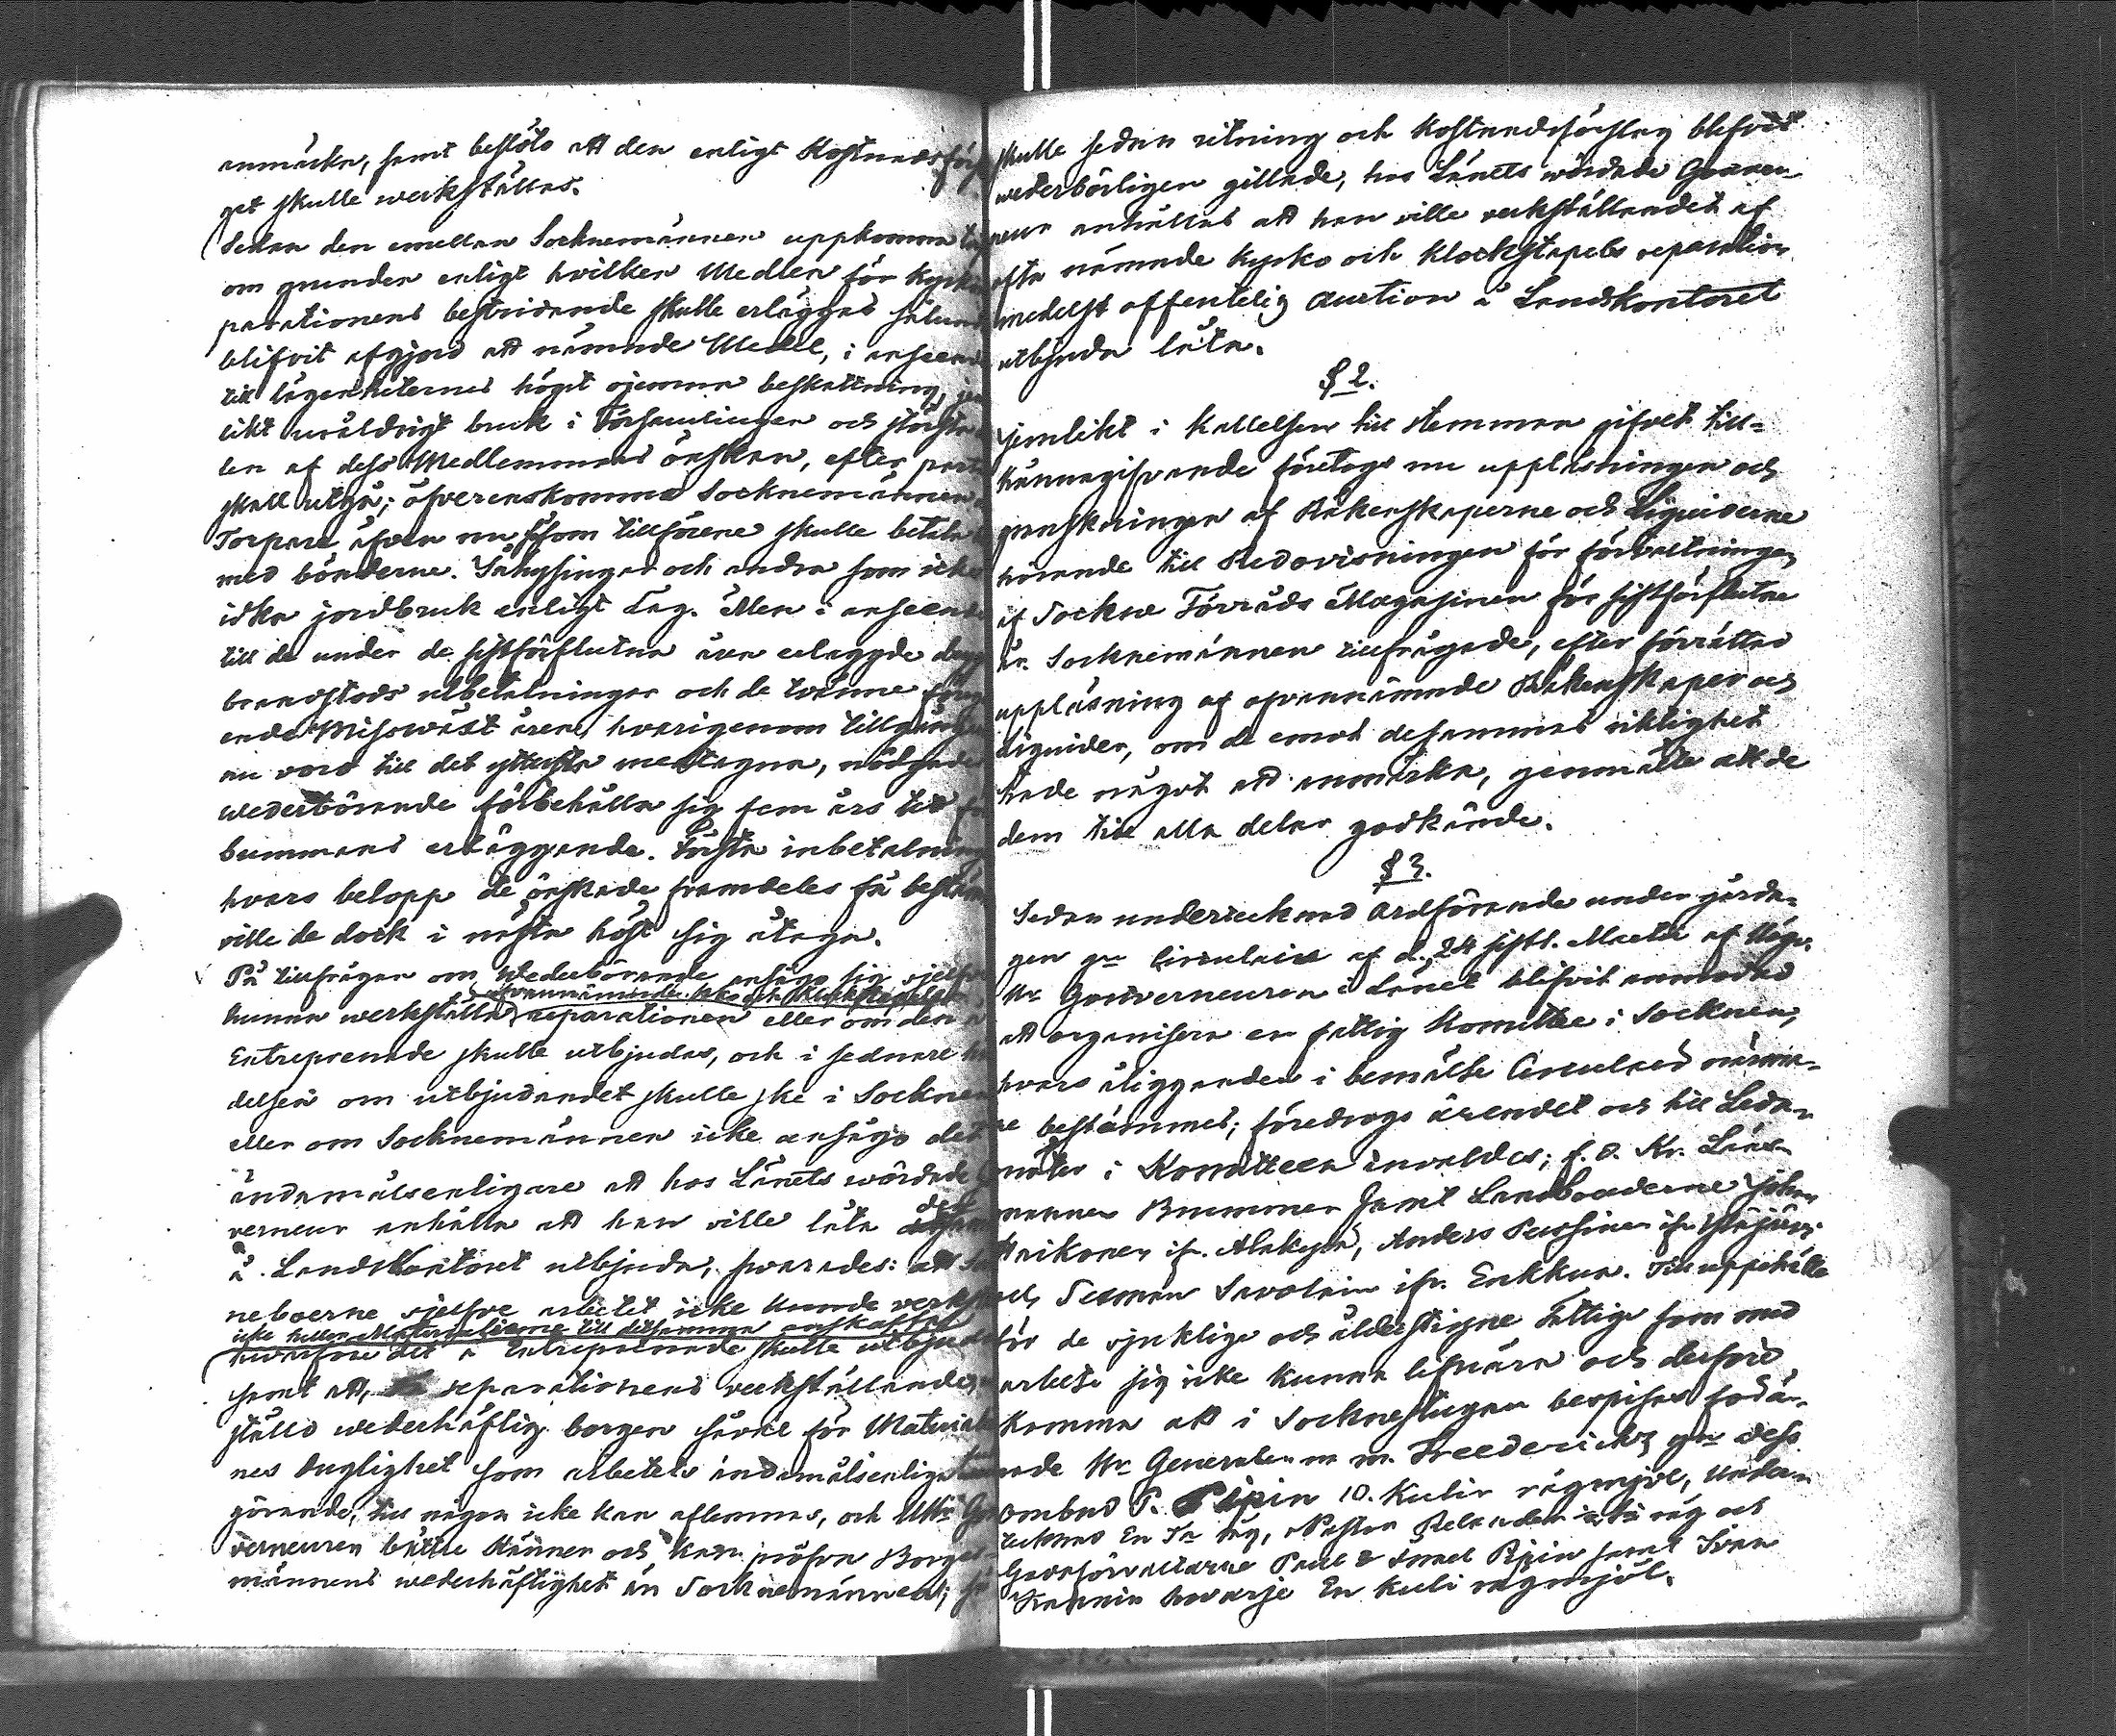 anmärka, samt beslöto att den enligt Kostnadsförsla
get skulle werkställas.
Sedan den emellan Socknemännen uppkomna
om grunden enligt hvilken Medlen för kyrko
parationens bestridande skulle erläggas sålunda
blifvit afgjord att nämnde Medel, i anseende
till lägenheternes högst ojemna beskattning,
likt uråldrigt bruk i Församlingen och största
len af dess Medlemmars önskan, efter
skall utgå; öfverenskommo Socknemännen
Torpare äfven nu såsom tillförene skulle betala
med bönderne. Inhysingar och andra som icke
idka jordbruk enligt Lag. Men i anseende
till de under de sistförflutna åren erlagde
brandstods utbetalningar och de tvänne
ende Missväxt åren, hvarigenom tillgången
nu voro till det yttersta medtagna, nödgades
wederbörande förbehålla sig fem års tid
summans erläggande. Första inbetalning
hvars belopp de önskade framdeles få bestäm
ville de dock i nästa höst sig åtaga.
På tillfrågan om Wederbörande ansågo sig sjelfve
ofvannämnde kyrko och Klockstapels
kunna werkställa reparationen eller om den
Entreprenade skulle utbjudas, och i sednare
delsen om utbjudandet skulle ske i Socknen
eller om Socknemännen icke ansågo det
ändamålsenligare att hos Länets wördade
verneur anhålla att han ville låta det
å Landskontoret utbjuda, svarades: att
neboerne sjelfve arbetet icke kunde verkst
icke heller Materialierne till detsamma anskaffa
hvarföre det å Entreprenade skulle utbjud
samt att, reparationens verkställande,
ställd wederhäftig borgen såväl för Material
nes duglighet som arbetets ändamålsenliga
görande, till någon icke kan aflemnas, och Hr Gou
verneuren bättre känner och kan pröfva Borges
männens wederhäftighet än Socknemännen;
skulle sedan ritning och Kostnadsförslag blifvit
wederbörligen gillade, hos Länets wördade Gouver
neur anhållas att han ville verkställandet af
ofta nämnde kyrko och Klockstapels reparation
medelst offentelig auction å Landskontoret
utbjuda låta.
§ 2.
Jemlikt i Kallelsen till stemman gifvet till-
kännagifvande företogs nu uppläsningen och
granskningen af Räkenskaperne och Liquiderne
hörande till Redovisningen för förvaltningen
af Sockne Förråds Magasinen för sistförflutne
år. Socknemännen tillfrågade, efter förrättad
uppläsning af ofvannämnde Räkenskaper och
liquider, om de emot desammas riktighet
hade något att anmärka, genmälte att de
dem till alla delar godkände.
§ 3.
Sedan undertecknad Ordförande under gårda-
gen gm Circulaire af d. 24 sistl. Martii af
Hr Gouverneuren i Länet blifvit anmodad
att organisera en fattig Komittée i Socknen,
hvars åligganden i bemälte Circulaire närma-
re bestämmes; föredrogs ärendet och till Leda-
möter i Komitteen invaldes; f.d. Kr. Läns-
mannen Brummer samt Landboaderne Johan
ifr. Alakylä, Anders Pussinen ifr
och Savelain ifr. Erkkua. Till uppehälle
för de sjuklige och ålderstigne Fattige som med
arbete sig icke kunna lifnära och derföre
komma att i Sockneslugan bespisas
nde Hr Generalen m m. Freedericks gm dess
ombud P. Pipin 10. kulir rågmjöl, under-
tecknad En Ta råg, Pastor Relander råg och
Godsförvaltarne Paul & Pipin samt Ivan
hvarje En kuli rågmjöl.